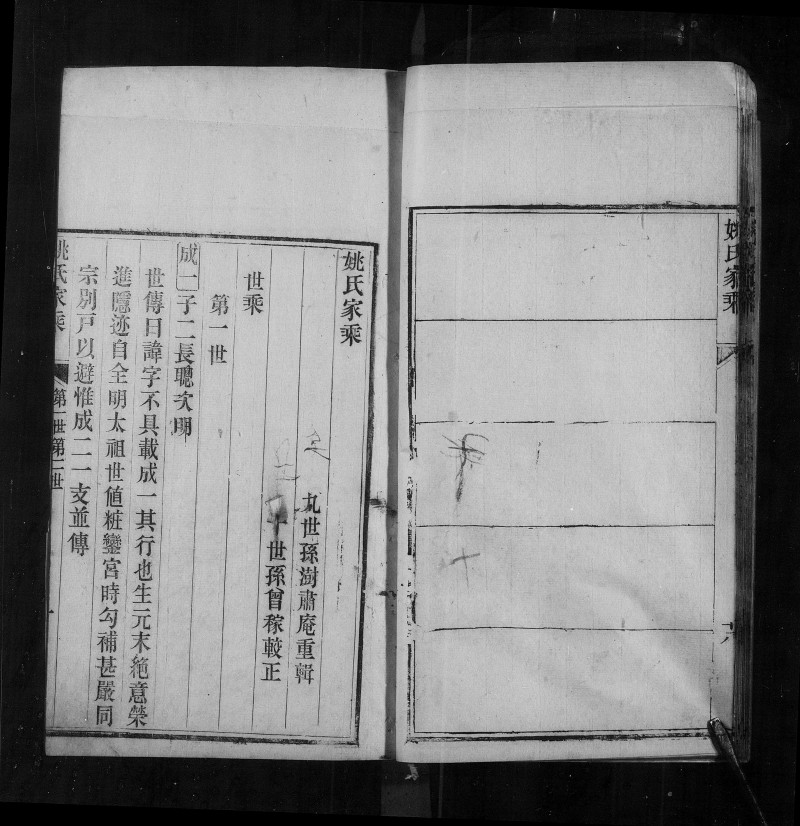 姚氏家乘
姚氏家乘
九世孫澍肅庵重輯
十世孫曾稼較正
世乘
第一世
成一子二長聰次明
世傳曰諱字不具載成一其行也生元末絶意榮
進隱迹自全明太祖世値粧鑾宮時勾補甚嚴同
宗別戸以避惟成二一支並傳
姚氏家乘
第一世第二世